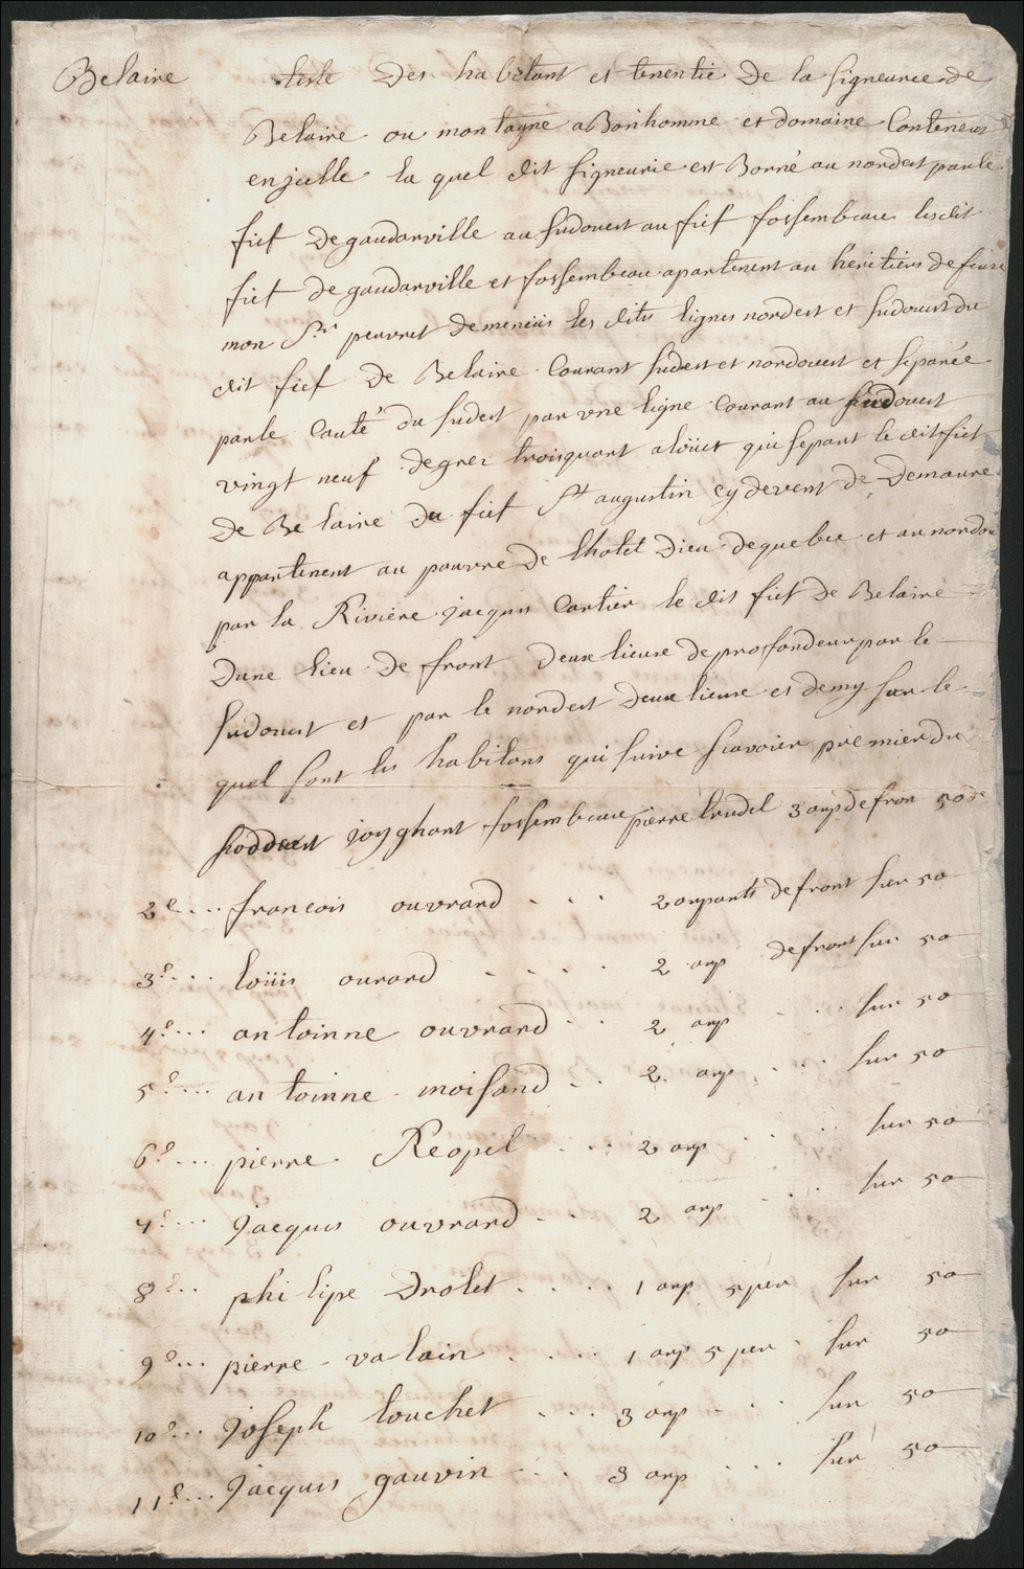 Belaire liste Des habitant et tenentie De la signeurie de
Belaire ou montagne a Bonhomme et domaine Conteneus
enjcelle la quel dit signeurie est Borné au nordest par le
fief De gaudarville au sudouest au fief fossembeau lesdit
fief de gaudarville et fossembeau apartenent au heritiers de feue
mon Sr. peuvret demenüis les dits lignes nordest et sudouest du
dit fief De Belaire Courant sudest et nordouest et separée
par le Couté du sudest par vne ligne Courant au sudouest
vingt neuf degrez troisquart a loüest qui separt le dit fief
de Belaire Du fief St augustin cy devent de Demaure
appartenent au pauvre De lhotel Dieu de quebec et au nordou
par la Riviere jacques Cartier le dit fief De Belaire
Dune lieu de front Deux lieux de proffondeur par le
sudouest et par le nordest Deux lieux et demy sur le
quel sont les habitans qui suive scavoier premier du
sodouest joyghant fossembeau pierre trudel 3 arp de fron 50 de
2e.... francois ouvrard . . . 2 arpants de front sur 50
3e... loüis ourard . . . . 2 arp de front sur 50
4e... antoinne ouvrard . . 2 arp . . . sur 50
5e... antoinne moisand . . 2 arp . . . . sur 50
6e... pierre Reopel . . . . 2 arp . . . sur 50
4e... jacques ouvrard . . 2 arp . . . sur 50
8e... philipe Drolet . . . . 1 arp 5 per sur 50
9e... pierre valain . . . . 1 arp 5 per . sur 50
10e... joseph touchet . . . 3 arp . . . sur 50
11e... jacques gauvin . . . 3 arp . . . sur 50